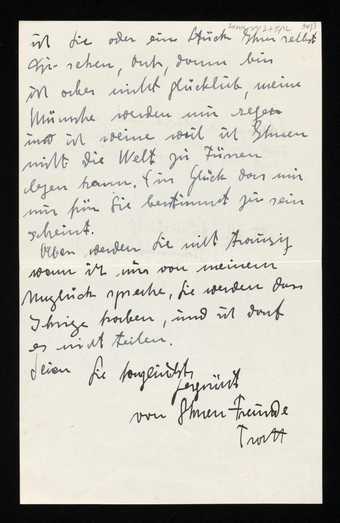 ist Sie oder ein Stück Ihrer selbst
zu sehen, dort, dann bin
ich aber nicht glücklich, meine
Wünsche werden nur
und ich weine weil ich Ihnen
nicht die Welt zu Füssen
legen kann. Ein Glück das mir
nur für Sie bestimmt zu sein
scheint.
Aber werden Sie nicht traurig
wenn ich nur von meinem
Unglück spreche, Sie werden das
Ihrige haben, und ich darf
es nicht teilen.
Seien Sie herzlichst
gegrüsst
von Ihrem Freunde
Trott